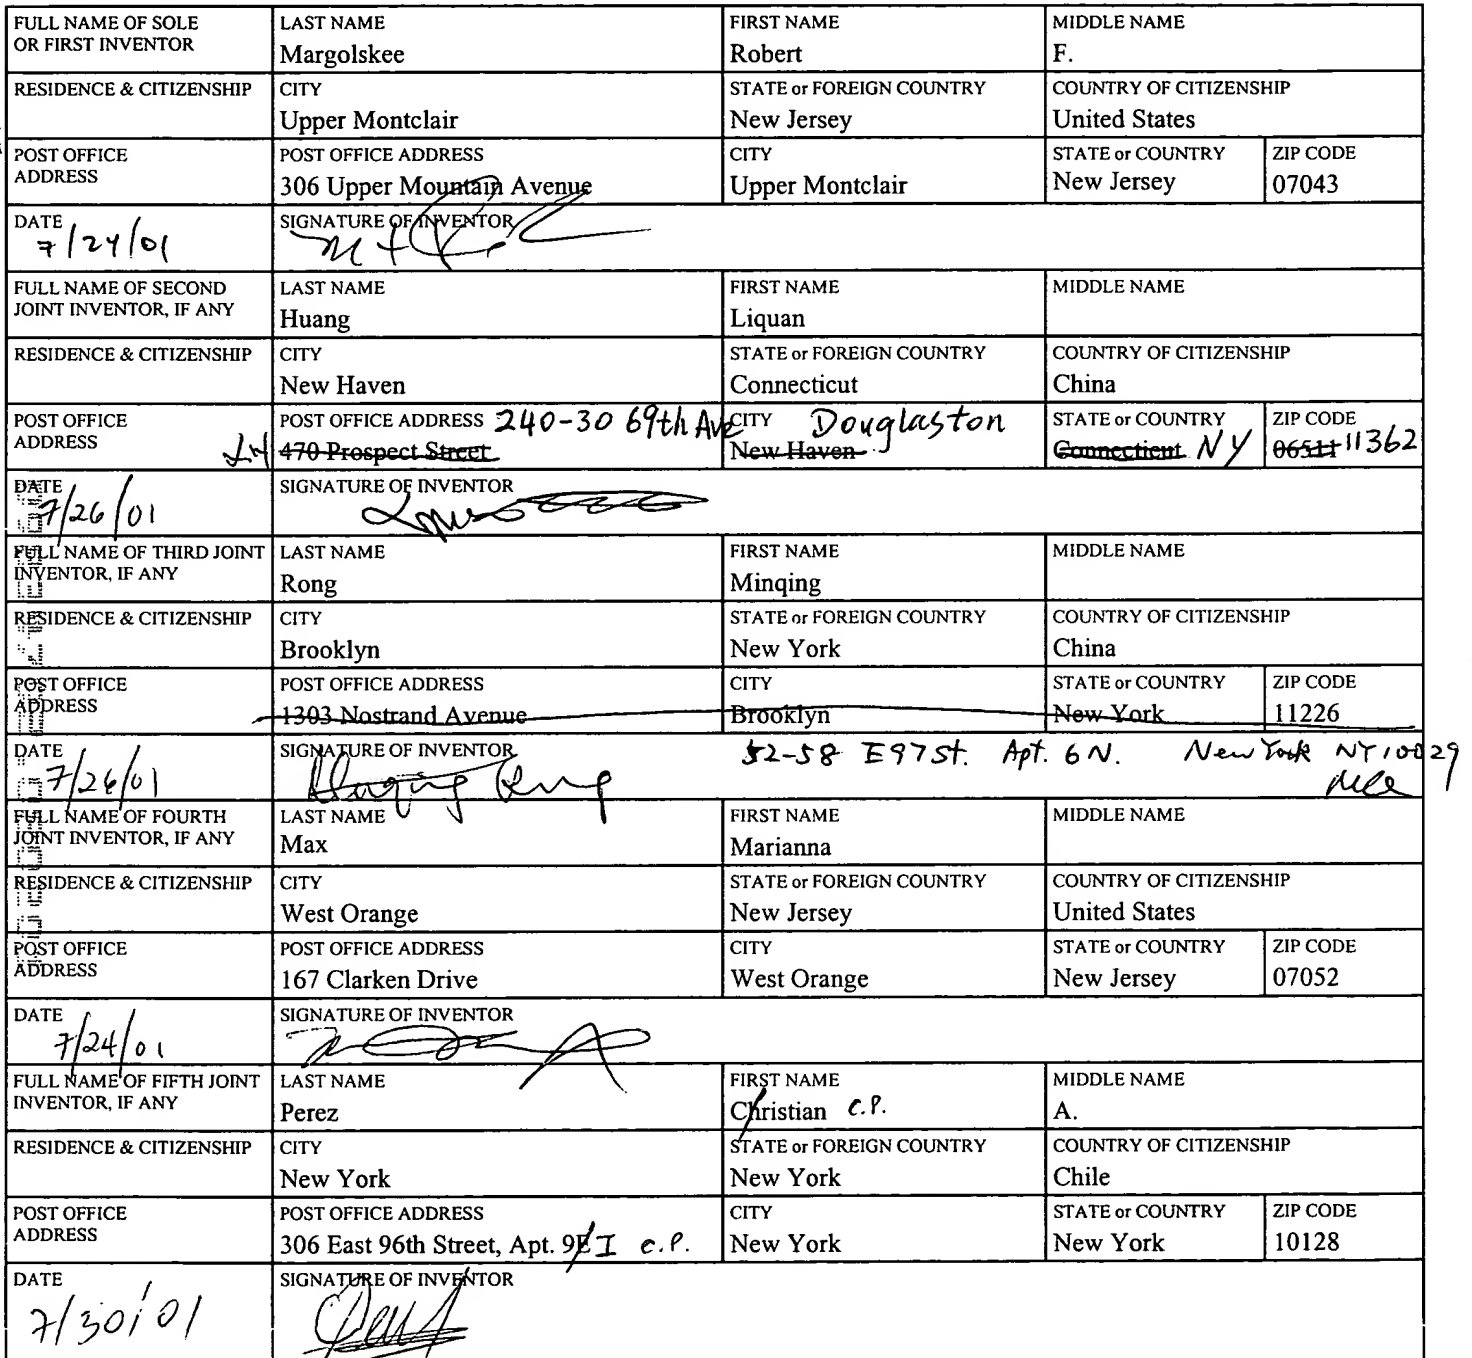 FULL NAME OF SOLE OR FIRST INVENTOR
LAST NAME Margolskee
FIRST NAME Robert
MIDDLE NAME F.
RESIDENCE & CITIZENSHIP
CITY Upper Montclair
STATE or FOREIGN COUNTRY New Jersey
COUNTRY OF CITIZENSHIP United States
POST OFFICE ADDRESS
POST OFFICE ADDRESS 306 Upper Mountain Avenue
CITY Upper Montclair
STATE or COUNTRY New Jersey
ZIP CODE 07043
DATE 7/24/01
SIGNATURE OF INVENTOR
FULL NAME OF SECOND JOINT INVENTOR, IF ANY
LAST NAME Huang
FIRST NAME Liquan
MIDDLE NAME
RESIDENCE & CITIZENSHIP
CITY New Haven
STATE or FOREIGN COUNTRY Connecticut
COUNTRY OF CITIZENSHIP China
POST OFFICE ADDRESS
POST OFFICE ADDRESS 240-30 69th Ave
LH 470 Prospect Street
CITY Douglaston
New Haven
STATE or COUNTRY
Connecticut NY
ZIP CODE
06511 11362
DATE 7/26/01
SIGNATURE OF INVENTOR
FULL NAME OF THIRD JOINT INVENTOR, IF ANY
LAST NAME Rong
FIRST NAME Minqing
MIDDLE NAME
RESIDENCE & CITIZENSHIP
CITY Brooklyn
STATE or FOREIGN COUNTRY New York
COUNTRY OF CITIZENSHIP China
POST OFFICE ADDRESS
POST OFFICE ADDRESS 1303 Nostrand Avenue
CITY Brooklyn
STATE or COUNTRY New York
ZIP CODE 11226
DATE 7/26/01
SIGNATURE OF INVENTOR Minqing Rong
52-58 E97St. Apt. 6N. New York NY 10029
FULL NAME OF FOURTH JOINT INVENTOR, IF ANY
LAST NAME Max
FIRST NAME Marianna
MIDDLE NAME
RESIDENCE & CITIZENSHIP
CITY West Orange
STATE or FOREIGN COUNTRY New Jersey
COUNTRY OF CITIZENSHIP United States
POST OFFICE ADDRESS
POST OFFICE ADDRESS 167 Clarken Drive
CITY West Orange
STATE or COUNTRY New Jersey
ZIP CODE 07052
DATE 7/24/01
SIGNATURE OF INVENTOR
FULL NAME OF FIFTH JOINT INVENTOR, IF ANY
LAST NAME Perez
FIRST NAME Christian C.P.
MIDDLE NAME A.
RESIDENCE & CITIZENSHIP
CITY New York
STATE or FOREIGN COUNTRY New York
COUNTRY OF CITIZENSHIP Chile
POST OFFICE ADDRESS
POST OFFICE ADDRESS 306 East 96th Street, Apt. 9E I C.P.
CITY New York
STATE or COUNTRY New York
ZIP CODE 10128
DATE 7/30/01
SIGNATURE OF INVENTOR